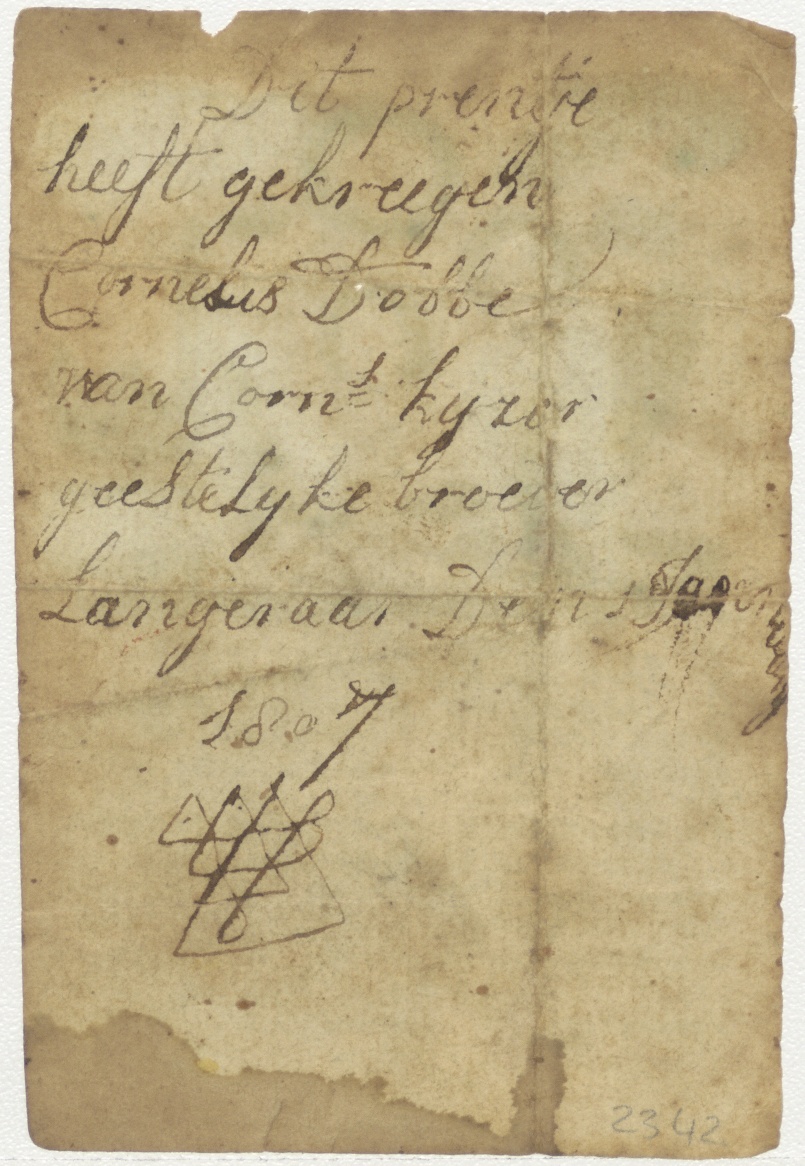 Dit prentie
heeft gekreegen
Cornelus Dobbe
van Corns Kyzer
geestelyke broeder
Langeraar Den 1
1807
2342